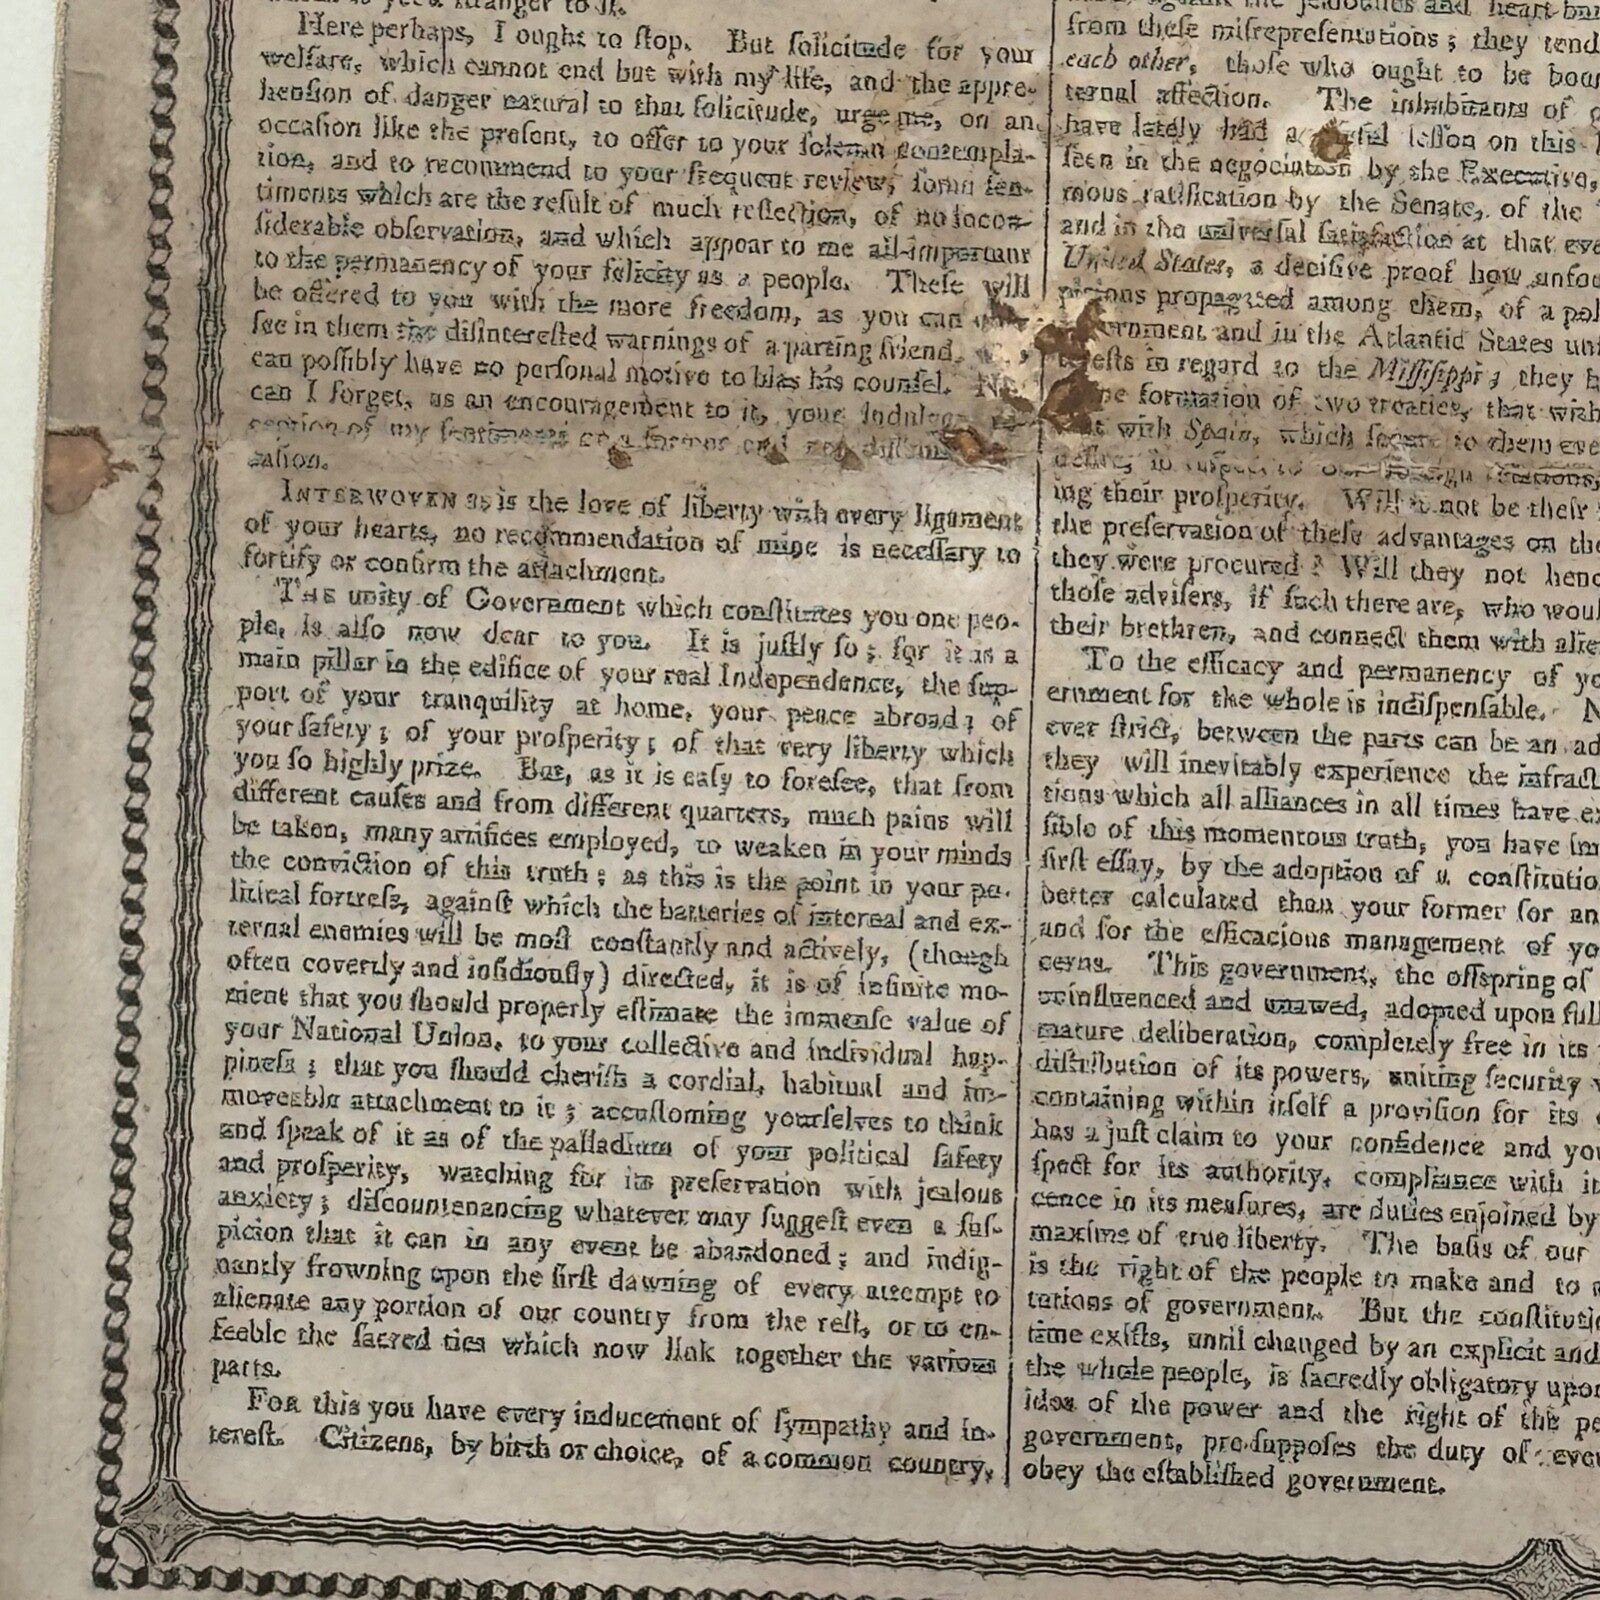 Here perhaps, I ought to ſtop. But ſolicitude for your
welfare, which cannot end but with my life, and the appre-
henſion of danger natural to that ſolicitude, urge me, on an
occaſion like the preſent, to offer to your ſolemn contempla-
tion, and to recommend to your frequent review, ſome ſen-
timents which are the reſult of much reflection, of no incon-
ſiderable obſervation, and which appear to me all-important
to the permanency of your felicity as a people. Theſe will
be offered to you with the more freedom, as you can
ſee in them the diſintereſted warnings of a parting friend,
can poſſibly have no perſonal motive to bias his counſel.
can I forget, as an encouragement to it, your
of my ſentiments
caſion.
INTERWOVEN as is the love of liberty with every ligament
of your hearts, no recommendation of mine is neceſſary to
fortify or confirm the attachment.
THE unity of Government which conſtitutes you one peo-
ple, is alſo now dear to you. It is juſtly ſo; for it is a
main pillar in the edifice of your real Independence, the ſup-
port of your tranquility at home, your peace abroad; of
your ſafety; of your proſperity; of that very liberty which
you ſo highly prize. But, as it is eaſy to foreſee, that from
different cauſes and from different quarters, much pains will
be taken, many artifices employed, to weaken in your minds
the conviction of this truth; as this is the point in your po-
litical fortreſs, againſt which the batteries of internal and ex-
ternal enemies will be moſt conſtantly and actively, (though
often covertly and inſidiouſly) directed, it is of infinite mo-
ment that you ſhould properly eſtimate the immenſe value of
your National Union, to your collective and individual hap-
pineſs; that you ſhould cheriſh a cordial, habitual and im-
moveable attachment to it; accuſtoming yourſelves to think
and ſpeak of it as of the palladium of your political ſafety
and proſperity, watching for its preſervation with jealous
anxiety; diſcountenancing whatever may ſuggeſt even a ſuſ-
picion that it can in any event be abandoned; and indig-
nantly frowning upon the firſt dawning of every attempt to
alienate any portion of our country from the reſt, or to en-
feeble the ſacred ties which now link together the various
parts.
FOR this you have every inducement of ſympathy and in-
tereſt. Citizens, by birth or choice, of a common country,
from theſe miſrepreſentations; they tend
each other, thoſe who ought to be
ternal affection. The inhabitants of
have lately had a leſſon on this
ſeen in the negociation by the Executive,
mous ratification by the Senate, of the
and in the univerſal ſatisfaction at that
United States, a deciſive proof how
propagated among them, of a
and in the Atlantic States
in regard to the Miſſiſippi; they
formation of two treaties, that with
with Spain, which ſecure to them
in reſpect to our foreign relations,
ing their proſperity. Will it not be their
the preſervation of theſe advantages on the
they were procured? Will they not
thoſe adviſers, if ſuch there are, who
their brethren, and connect them with
To the efficacy and permanency of
ernment for the whole is indiſpenſable.
ever ſtrict, between the parts can be an
they will inevitably experience the
tions which all alliances in all times have
ſible of this momentous truth, you have
firſt eſſay, by the adoption of a
better calculated than your former for an
and for the efficacious management of
cerns. This government, the offspring of
uninfluenced and unawed, adopted upon full
mature deliberation, completely free in its
diſtribution of its powers, uniting ſecurity
containing within itſelf a proviſion for its
has a juſt claim to your confidence and
ſpect for its authority, compliance with
cence in its meaſures, are duties enjoined by
maxims of true liberty. The baſis of our
is the right of the people to make and to
tutions of government. But the
time exiſts, until changed by an explicit and
the whole people, is ſacredly obligatory
idea of the power and the right of the
government, pre-ſuppoſes the duty of
obey the eſtabliſhed government.